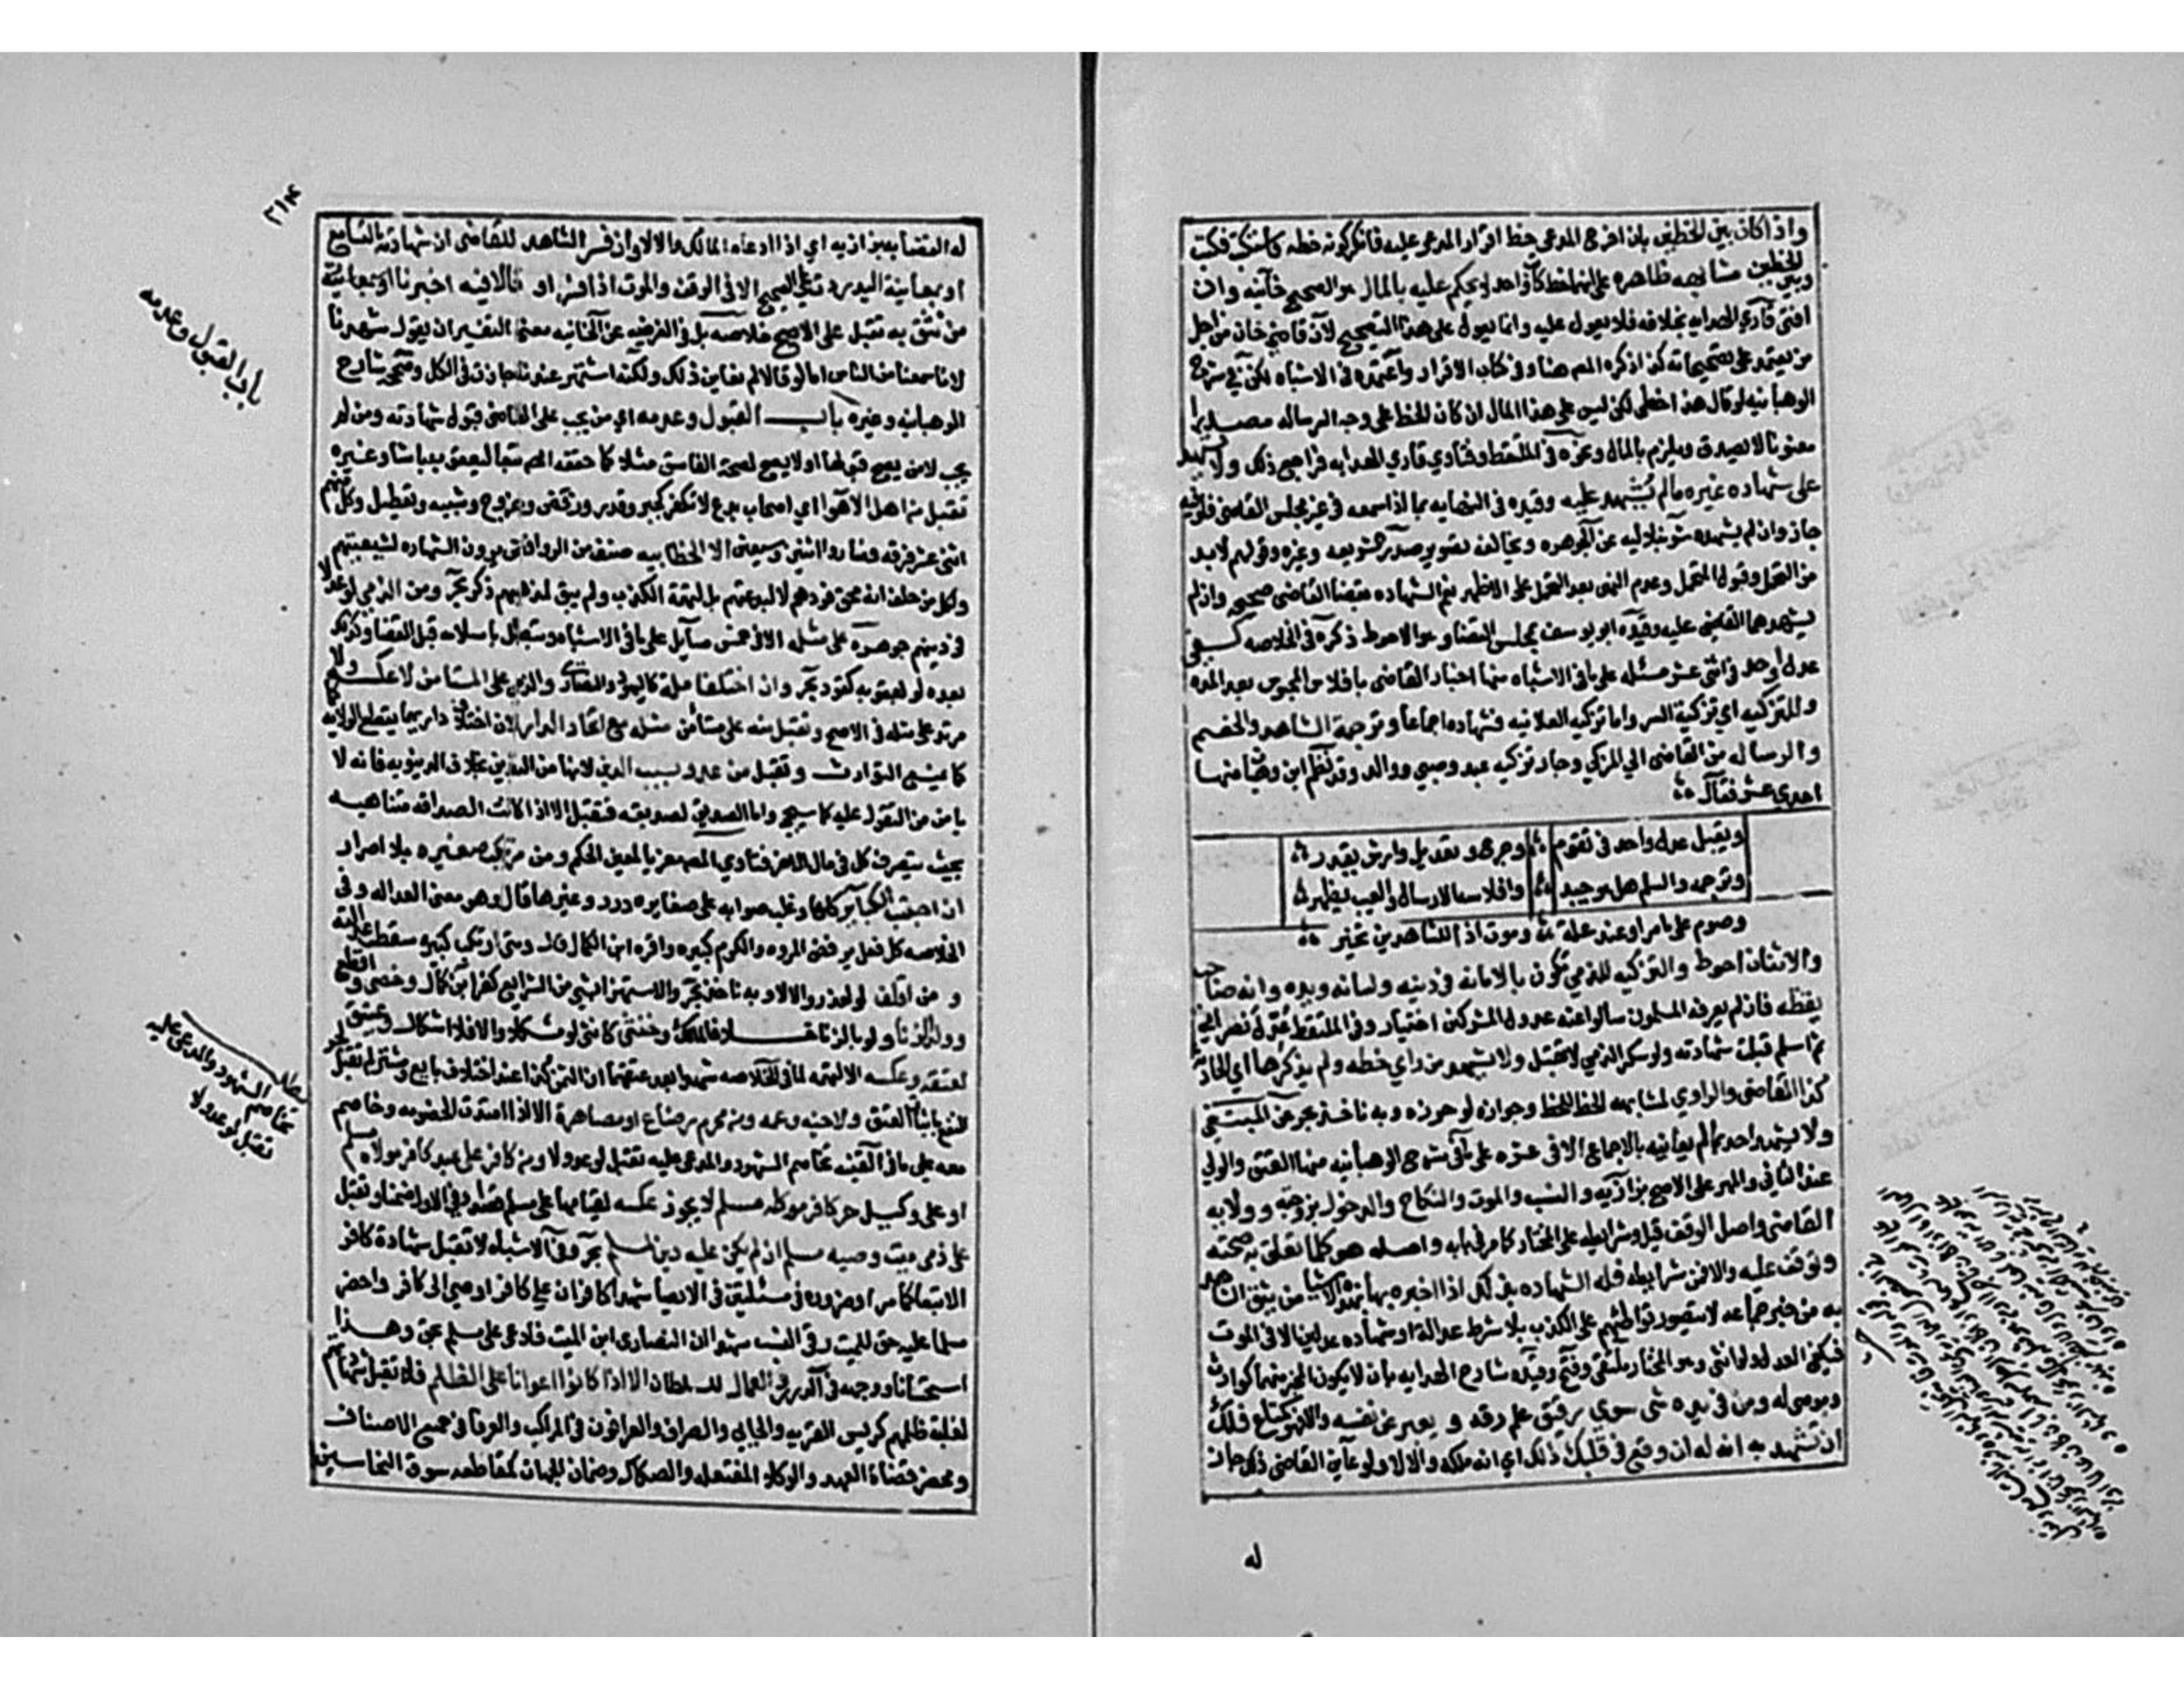 واذا كان بين الخطين بان اخرج المدعي خط اقرار المدعى عليه فانكر كونه خطه فاستكتب فكتب
وبين الخطين مشابهه ظاهره على انهما خط كاتب واحد لا يحكم عليه بالمال هو الصحيح خانيه وان
افتى قاري الهدايه بخلافه فلا يعول عليه وانما يعول على هذا التصحيح لان قاضي خان من اجل
من يعتمد على تصحيحاته كذا ذكره المص هنا وفي كتاب الاقرار واعتمده في الاشباه لكن في شرح
الوهبانيه لو قال هذا خطي لكن ليس علي هذا المال ان كان الخط على وجه الرساله مصدرا
معنونا لا يصدق ويلزم بالمال ونحوه في الملتقط وفتاوي قاري الهدايه فراجع ذلك ولا يشهد
على شهاده غيره ما لم يشهد عليه وقيده في النهايه بما اذا سمعه في غير مجلس القاضي فلو فيه
جاز وان لم يشهده شرنبلاليه عن الجوهره ويخالفه تصوير صدر الشريعه وغيره وقولهم لا بد
من التحمل وقبول التحمل وعدم النهي بعد التحمل على الاظهر نعم الشهاده بقضا القاضي صحيحه وان لم
يشهدهما القاضي عليه وقيده ابو يوسف بمجلس القضا وهو الاحوط ذكره في الخلاصه كفى
عدل واحد في اثني عشر مسئله على ما في الاشباه منها اخبار القاضي بافلاس المحبوس بعد المده
وللتزكيه اي تزكية السر واما تزكيه العلانيه فشهاده اجماعا وترجمة الشاهد والخصم
والرساله من القاضي الي المزكي وجاز تزكيه عبد وصبي ووالد وقد نظم ابن وهبان منها
احدي عشر فقال
ويقبل عدل واحد في تقوم وجرح وتعديل وارش يقدر
وترجمه والسلم هل هو جيد وافلاسه الارسال والعيب يظهر
وصوم على ما مر او عند علة وموت اذا للشاهدين يخبر
والاثنان احوط والتزكيه للذمي تكون بالامانه في دينه ولسانه ويده وانه صاحب
يقظه فان لم يعرفه المسلمون سالوا عنه عدول المشركين اختيار وفي الملتقط عدل نصراني
ثم اسلم قبلت شهادته ولو سكر الذمي لا تقبل ولا يشهد من راي خطه ولم يذكرها اي الحادثة
كذا القاضي والراوي لمشابهه الخط للخط وجوازه لو حوزه وبه ناخذ بحر عن المبتغى
ولا يشهد احد بما لم يعاينه بالاجماع الا في عشره على ما في شرح الوهبانيه منها العتق والولي
عند الثاني والمهر على الاصح بزازيه والنسب والموت والنكاح والدخول بزوجته وولايه
القاضي واصل الوقف قيل وشرايطه على المختار كما مر في بابه واصله هو كلما تعلق به صحته
وتوقف عليه والا فمن شرايطه فله الشهاده بذلك اذا اخبره بها بهذه الاشيا من يثق الشاهد
به من خبر جماعه لا يتصور تواطئهم على الكذب بلا شرط عداله او شهاده عدلين الا في الموت
فيكفي العدل ولو انثى وهو المختار ملتقى وفتح وقيده شارح الهدايه بان لا يكون المخبر متهما كوارث
وموصى له ومن في يده شى سوى رقيق علم رقه و يعبر عن نفسه والا فهو كمتاع فلك
ان تشهد به انه له ان وقع في قلبك ذلك اي انه ملكه والا لا ولو عاين القاضي ذلك جاز
له
٢١٤
له القضا به بزازيه اي اذا ادعاه المالك والا لا وان فسر الشاهد للقاضى ان شهادته بالتسامع
او بمعاينة اليد ردت على الصحيح الا في الوقف والموت اذا فسرا و قالا فيه اخبرنا او بمعاينة
من نثق به تقبل على الاصح خلاصه بل في العزميه عن الخانيه معنى التفسير ان يقولا شهدنا
لانا سمعنا من الناس اما لو قالا لم نعاين ذلك ولكنه اشتهر عندنا جازت في الكل وصححه شارح
الوهبانيه وغيره باب القبول وعدمه اي من يجب على القاضى قبول شهادته ومن لا
يجب لا من يصح قبولها او لا يصح لصحة الفاسق مثلا كما حققه المص تبعا ليعقوب باشا وغيره
تقبل من اهل الاهوا اي اصحاب بدع لا تكفر كجبر وقدر ورفض وخروج وتشبيه وتعطيل وكل منهم
اثنى عشر فرقه فصاروا اثنين وسبعين الا الخطابيه صنف من الروافض يرون الشهاده لشيعتهم
ولكل من حلف انه محق فردهم لا لبدعتهم بل لتهمة الكذب ولم يبق لمذهبهم ذكر بحر ومن الذمي لو عدلا
في دينهم جوهره على مثله الا في خمس مسايل على ما في الاشباه وتبطل باسلامه قبل القضا وكذا
بعده لو لعقوبه كقود بحر وان اختلفا مله كاليهود والنصارى والذمي على المستامن لا عكسه ولا
مرتد على مثله في الاصح وتقبل منه على مستأمن مثله مع اتحاد الدار لان اختلاف داريهما يقطع الولايه
كما يمنع التوارث وتقبل من عدو بسبب الدين لانها من التدين بخلاف الدنيويه فانه لا
يامن من التقول عليه كما سيجي واما الصديق لصديقه فتقبل الا اذا كانت الصداقه متناهيه
بحيث يتصرف كل في مال الاخر فتاوي المص معزيا لمعين الحكم ومن مرتكب صغيره بلا اصرار
ان اجتنب الكباير كلها وغلب صوابه على صغايره درر وغيرها قال وهو معنى العداله وفي
الخلاصه كل فعل يرفض المروه والكرم كبيره واقره ابن الكمال قال ومتى ارتكب كبيره سقطت عدالته
و من اقلف لو لعذر والا لا وبه ناخذ بحر والاستهزا بشي من الشرايع كفر ابن كمال وخصي واقطع
وولد الزنا ولو بالزنا خلافا لمالك وخنثى كانثى لو مشكلا والا فلا اشكال وعتيق
لمعتقه وعكسه الا لتهمه لما في الخلاصه شهدا بعد عتقهما ان الثمن كذا عند اختلاف بايع ومشتر لم تقبل لجر
النفع باثبات العتق ولاخيه وعمه ومن محرم رضاع او مصاهرة الا اذا امتدت الخصومه وخاصم
معه على ما في القنيه تخاصم الشهود والمدعى عليه تقبل لو عدولا ومن كافر على عبد كافر مولاه مسلم
او على وكيل حر كافر موكله مسلم لا يجوز عكسه لقيامها على مسلم قصدا وفي الاول ضمنا وتقبل
على ذمي ميت وصيه مسلم ان لم يكن عليه دين لمسلم بحر وفي الاشباه لا تقبل شهادة كافر
الا تبعا كما مر او ضروره في مسئلتين في الايصا شهدا كافران على كافر اوصى الى كافر واحضر
مسلما عليه حق للميت وفي النسب شهدا ان النصراني ابن الميت فادعى على مسلم بحق وهذا
استحسانا ووجهه في الدرر والعمال للسلطان الا اذا كانوا اعوانا على الظلم فلا تقبل شهادتهم
لغلبة ظلمهم كرئيس القريه والجابي والصراف والعرافون في المراكب والعرفا في جميع الاصناف
ومحضر قضاة العهد والوكلا المفتعله والصكاك وضمان الجهات كمقاطعه سوق النخاسين
باب القبول وعدمه
مطلب
تخاصم الشهود والمدعى عليه
تقبل لو عدولا